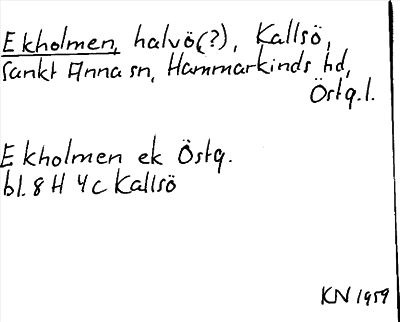 Ekholmen, halvö(?), Kallsö,
Sankt Anna sn, Hammarkinds hd,
Östg.l.
Ekholmen ek Östg.
bl. 8 H 4 c Kallsö
KN 1959